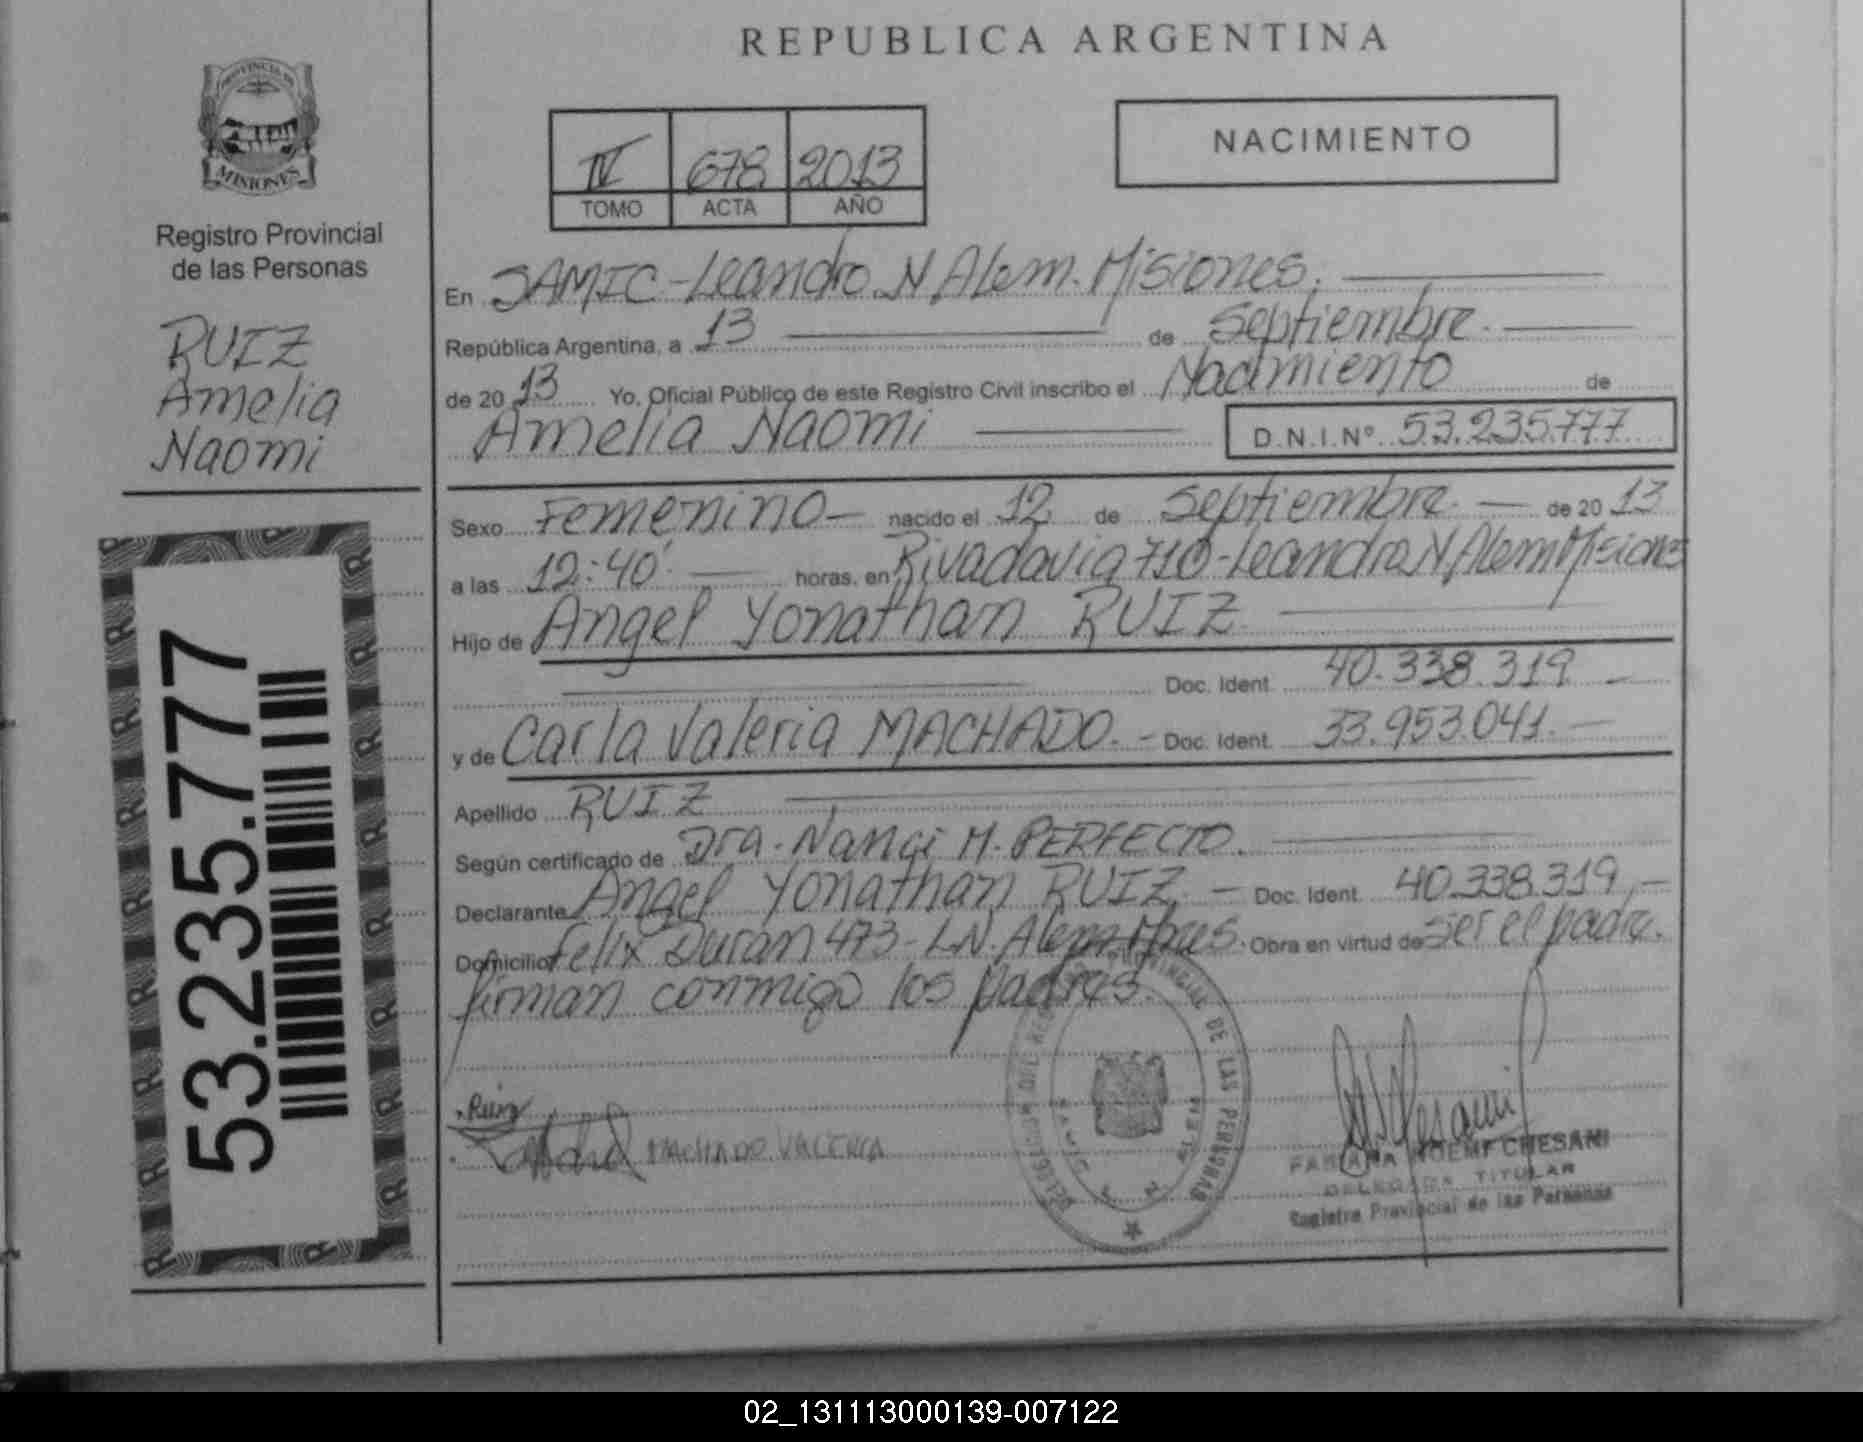 REPUBLICA ARGENTINA
PROVINCIA DE
MISIONES
Registro Provincial
de las Personas
RUIZ
Amelia
Naomi
53.235.777
IV 678 2013
TOMO ACTA AÑO
NACIMIENTO
En SAMIC-Leandro N Alem. Misiones.
República Argentina, a 13 de Septiembre.
de 20 13 Yo, Oficial Público de este Registro Civil inscribo el Nacimiento de
Amelia Naomi D.N.I.Nº 53.235.777
Sexo Femenino nacido el 12 de Septiembre de 20 13
a las 12:40' horas, en Rivadavia 710-Leandro N Alem Misiones
Hijo de Angel Yonathan RUIZ
Doc. Ident. 40.338.319
y de Carla Valeria MACHADO.- Doc. Ident. 33.953.041.
Apellido RUIZ
Según certificado de Dra. Nanci M. PERFECTO.
Declarante Angel Yonathan RUIZ. Doc. Ident. 40.338.319
Domicilio Felix Duran 473-L.N. Alem Mnes. Obra en virtud de ser el padre.
firman conmigo los padres.
Ruiz
MACHADO VALERIA
PROVINCIAL DE LAS PERSONAS
FABIANA NOEMI CHESANI
DELEGADA TITULAR
Registro Provincial de las Personas
02_131113000139-007122